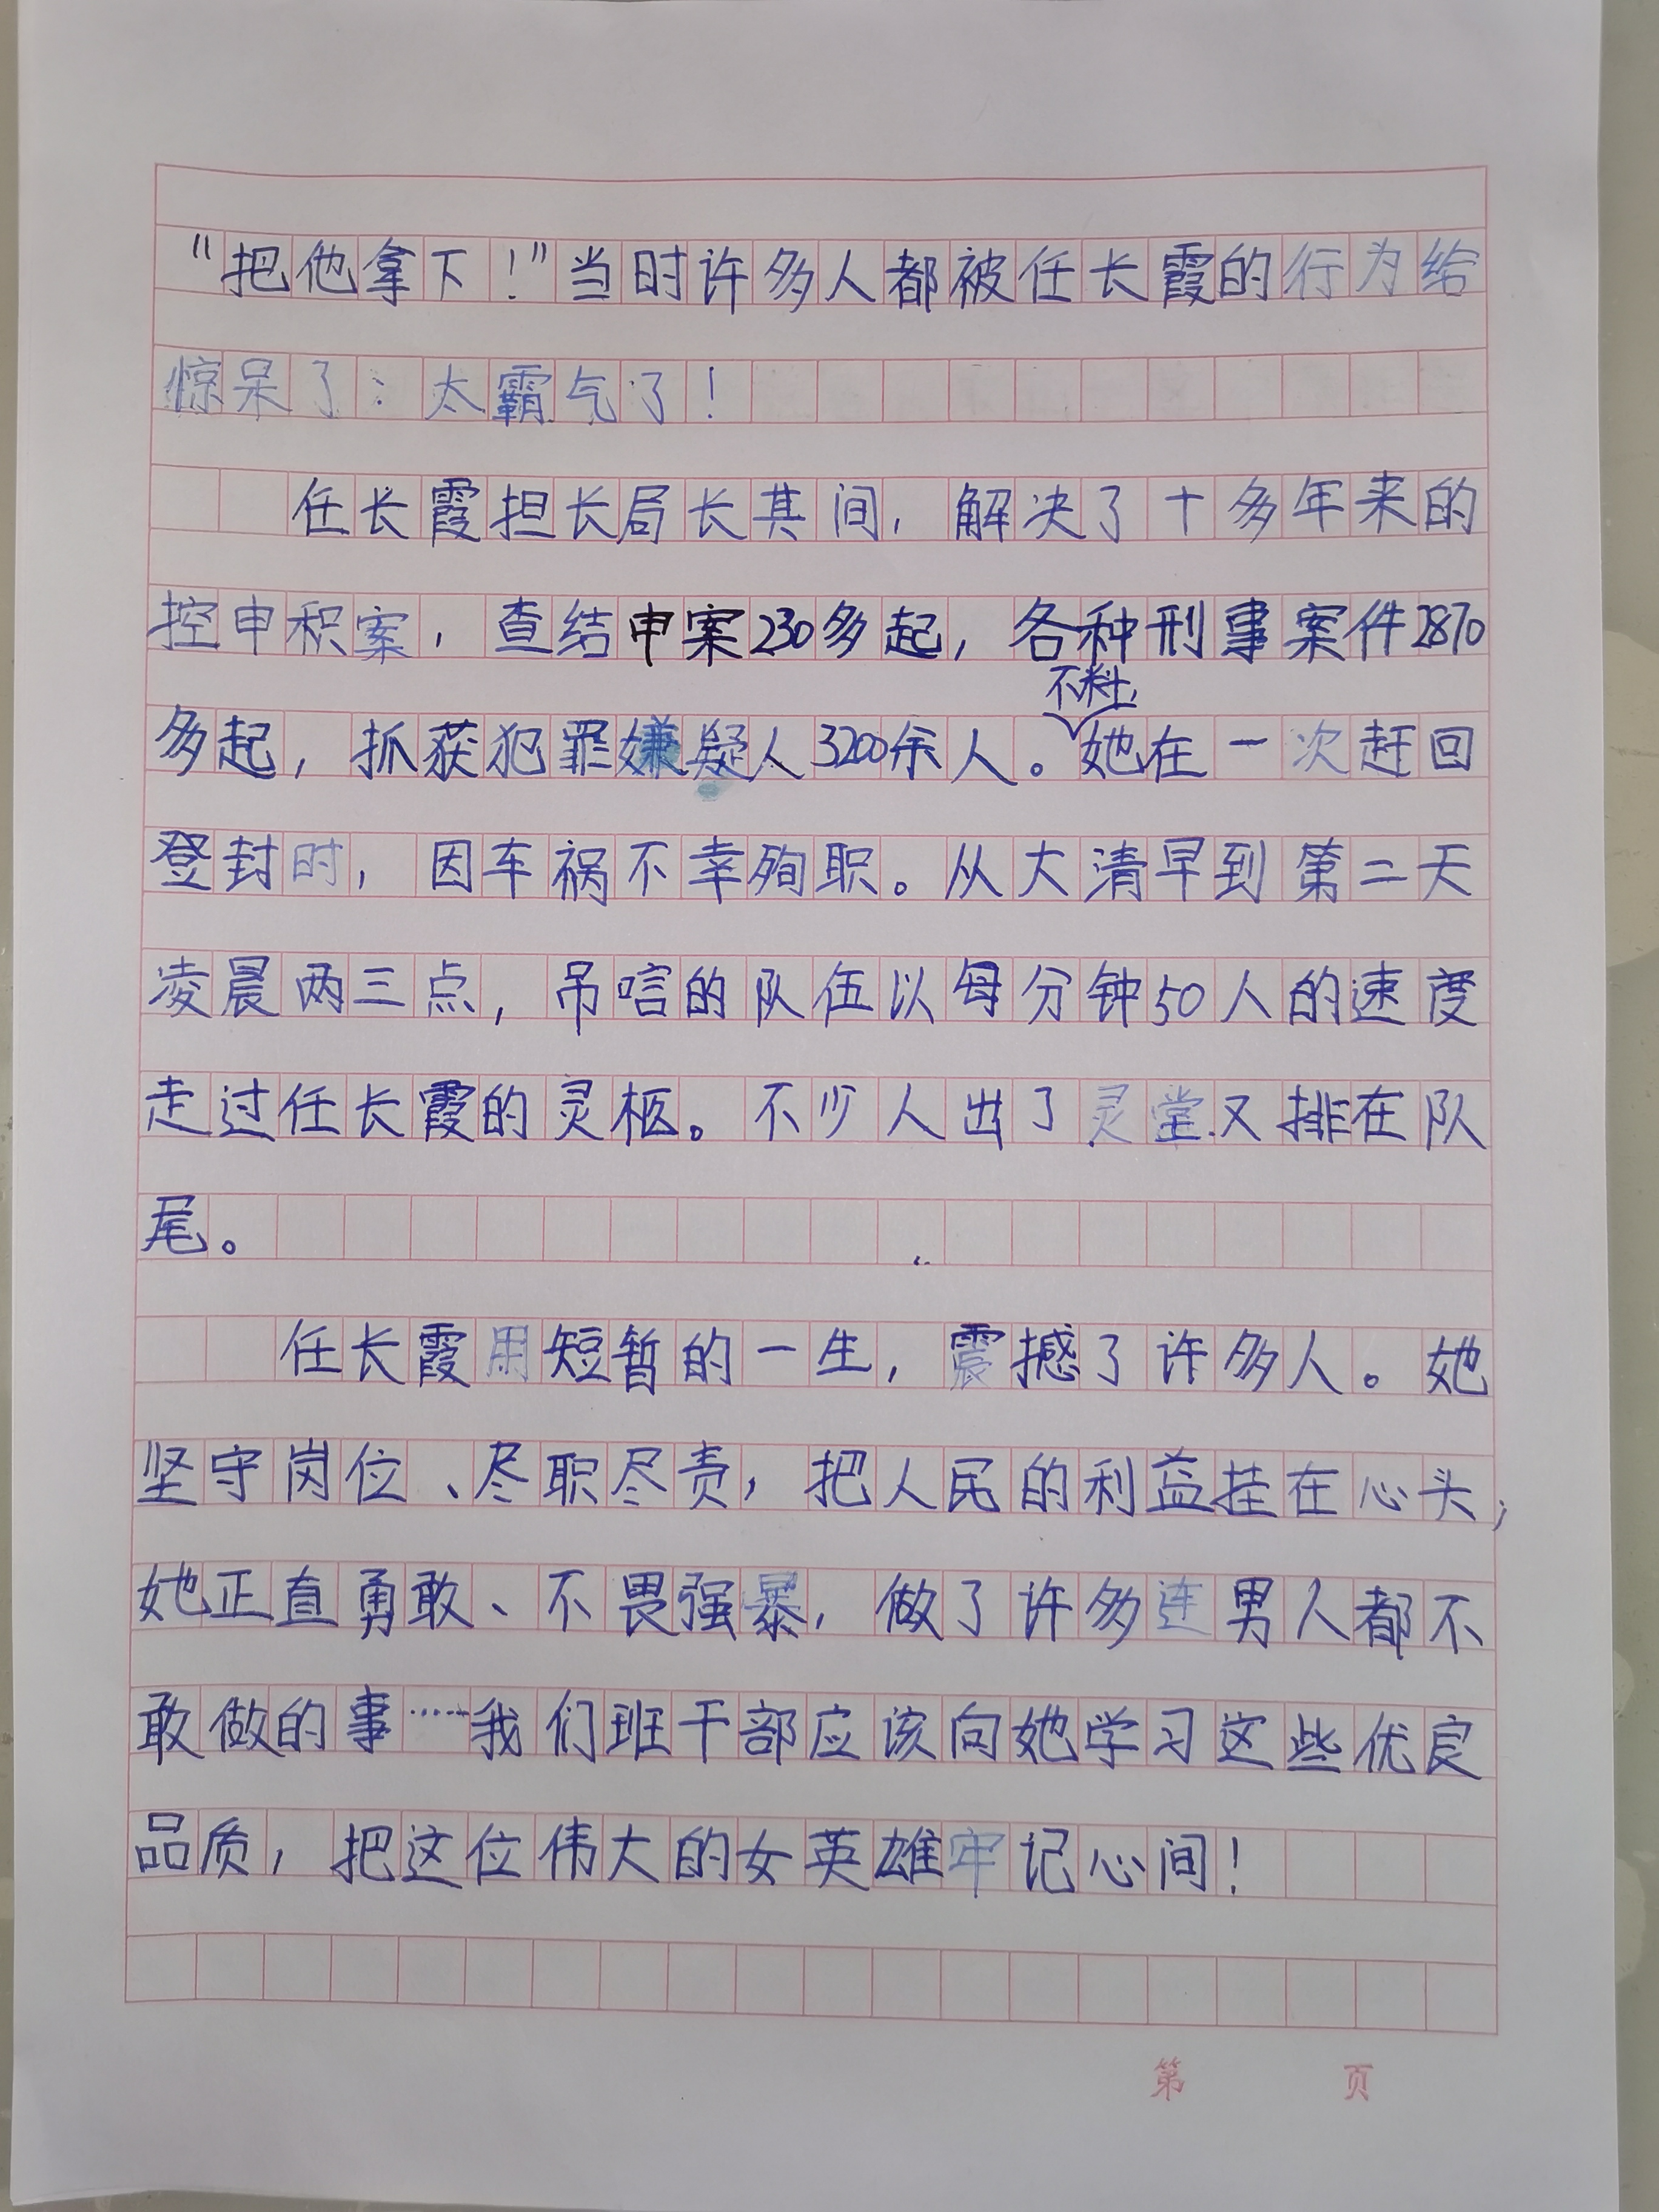 “把他拿下！”当时许多人都被任长霞的行为给
惊呆了：太霸气了！
任长霞担长局长其间，解决了十多年来的
控申积案，查结申案230多起，各种刑事案件2870
不料，
多起，抓获犯罪嫌疑人3200余人。她在一次赶回
登封时，因车祸不幸殉职。从大清早到第二天
凌晨两三点，吊唁的队伍以每分钟50人的速度
走过任长霞的灵柩。不少人出了灵堂又排在队
尾。
任长霞用短暂的一生，震撼了许多人。她
坚守岗位、尽职尽责，把人民的利益挂在心头；
她正直勇敢、不畏强暴，做了许多连男人都不
敢做的事……我们班干部应该向她学习这些优良
品质，把这位伟大的女英雄牢记心间！
第 页